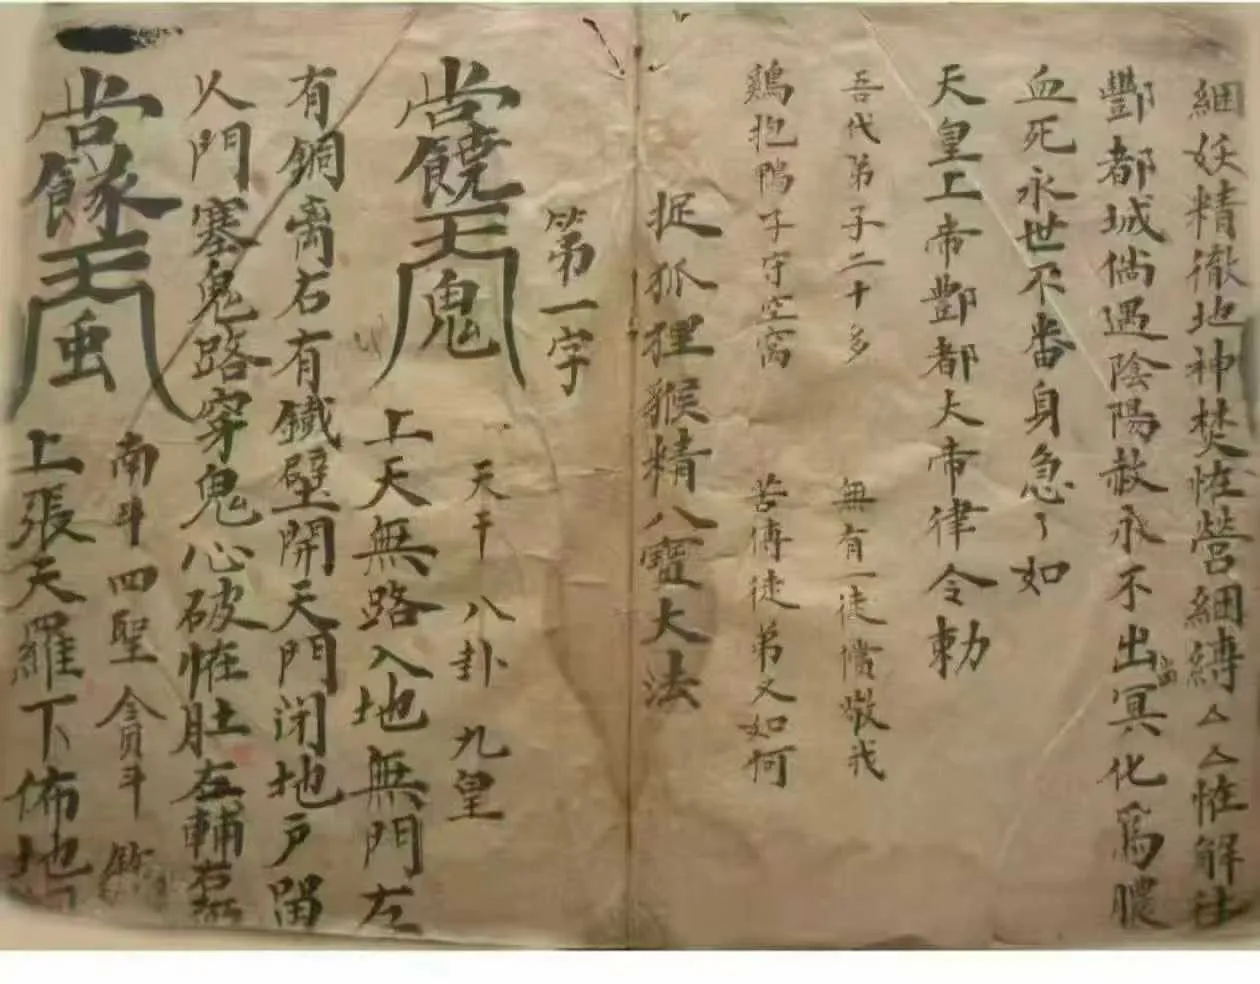 綑妖精徹地神焚恠營綑縛厶厶恠解往
酆都城倘遇陰陽赦永不出冥化為膿
血死永世不番身急了如
天皇上帝酆都大帝律令勅
吾代弟子二十多 無有一徒償敬我
鷄抱鴨子守空窩 苦傳徒弟又如何
捉狐狸猴精八寶大法
第一字
天干 八卦 九皇
上天無路入地無門左
有銅离右有鐵壁開天門闭地户留
人門塞鬼路穿鬼心破恠肚左輔右
南斗 四聖 貪斗
上張天羅下佈地